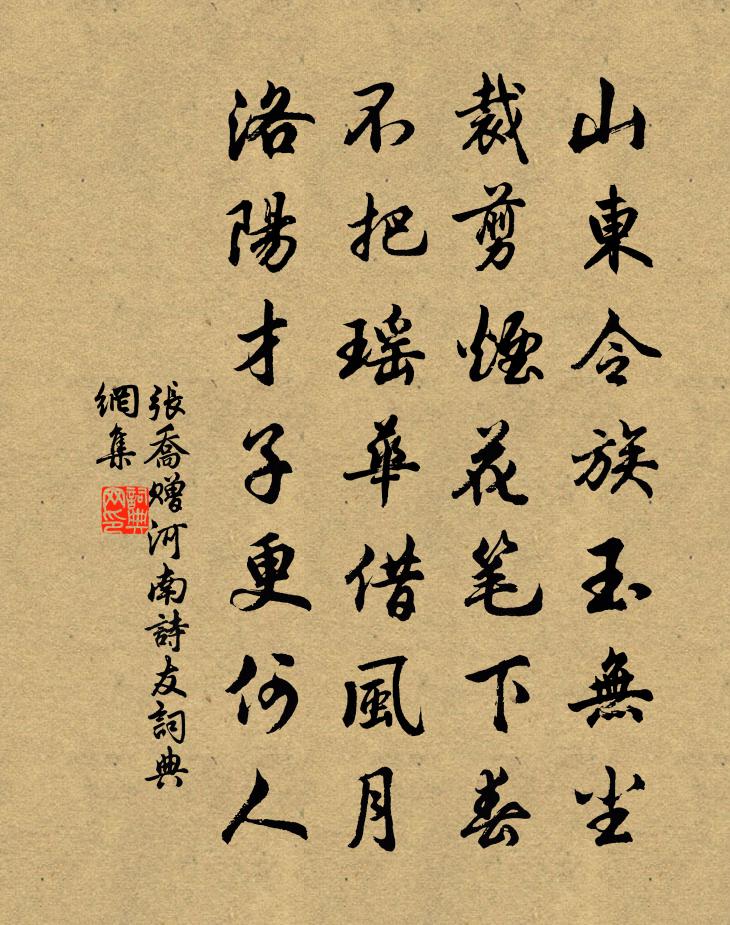 山東令族玉無尘
裁剪煙花笔下春
不把瑶華借風月
洛陽才子更何人
張喬赠河南詩友詞典
網集
詞典
网印